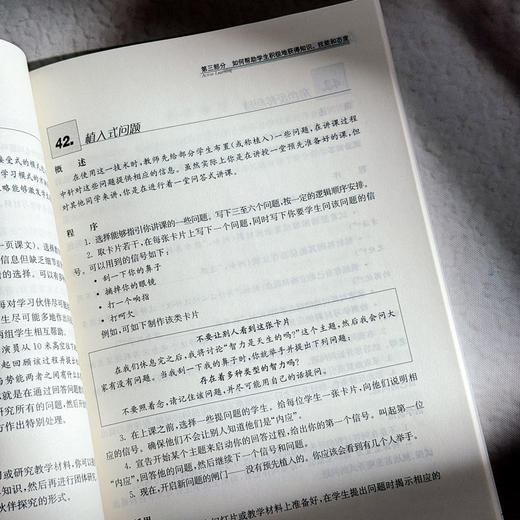 接受式的模式
学习模式的
略能够激发学
一页课文)。选择
信息但缺乏细节
者的选择。可以有
每对学习伙伴尽可能
生尽可能多地作出
两组学生相互帮助。
演员从 10 米高空往下
起回顾该过程并提出
与势能两者之间有什么
就是在通过回答问题的
研究所有的问题，然后开
方作出特别处理。
习或研究教学材料，你可以
知识，然后再进行团体研
伙伴探究的形式。
第三部分 如何帮助学生积极地获得知识、技能和态度
Active Learning
42. 植入式问题
概 述
在使用这一技术时，教师先给部分学生布置（或称植入）一些问题，在讲课过程
中针对这些问题提供相应的信息。虽然实际上你是在讲授一堂预先准备好的课，但
对其他同学来讲，你是在进行着一堂问答式讲课。
程 序
1. 选择能够指引你讲课的一些问题。写下三至六个问题，按一定的逻辑顺序安排。
2. 取卡片若干，在每张卡片上写下一个问题，同时写下你要学生问该问题的信
号。可以用到的信号如下：
• 刮一下你的鼻子
• 摘掉你的眼镜
• 打一个响指
• 打呵欠
例如，可如下制作该类卡片
不要让别人看到这张卡片
在我们休息完之后，我将讨论“智力是天生的吗？”这个主题，然后我会问大
家有没有问题。当我刮一下我的鼻子时，你就举手并提出下列问题：
存在着多种类型的智力吗？
不要照着念，请记住该问题，并尽可能用自己的话提问。
3. 在上课之前，选择一些提问题的学生。给每位学生一张卡片，向他们说明相
应的信号。确保他们不会让别人知道他们是“内应”。
4. 宣告开始某个主题来启动你的回答过程，给出你的第一个信号。叫起第一位
“内应”，回答他的问题，然后继续下一个信号和问题。
5. 现在，开启新问题的闸门——没有预先植入的。你应该会看到有几个人举手。
幻灯片或教学材料上准备好，在学生提出问题时揭示相应的